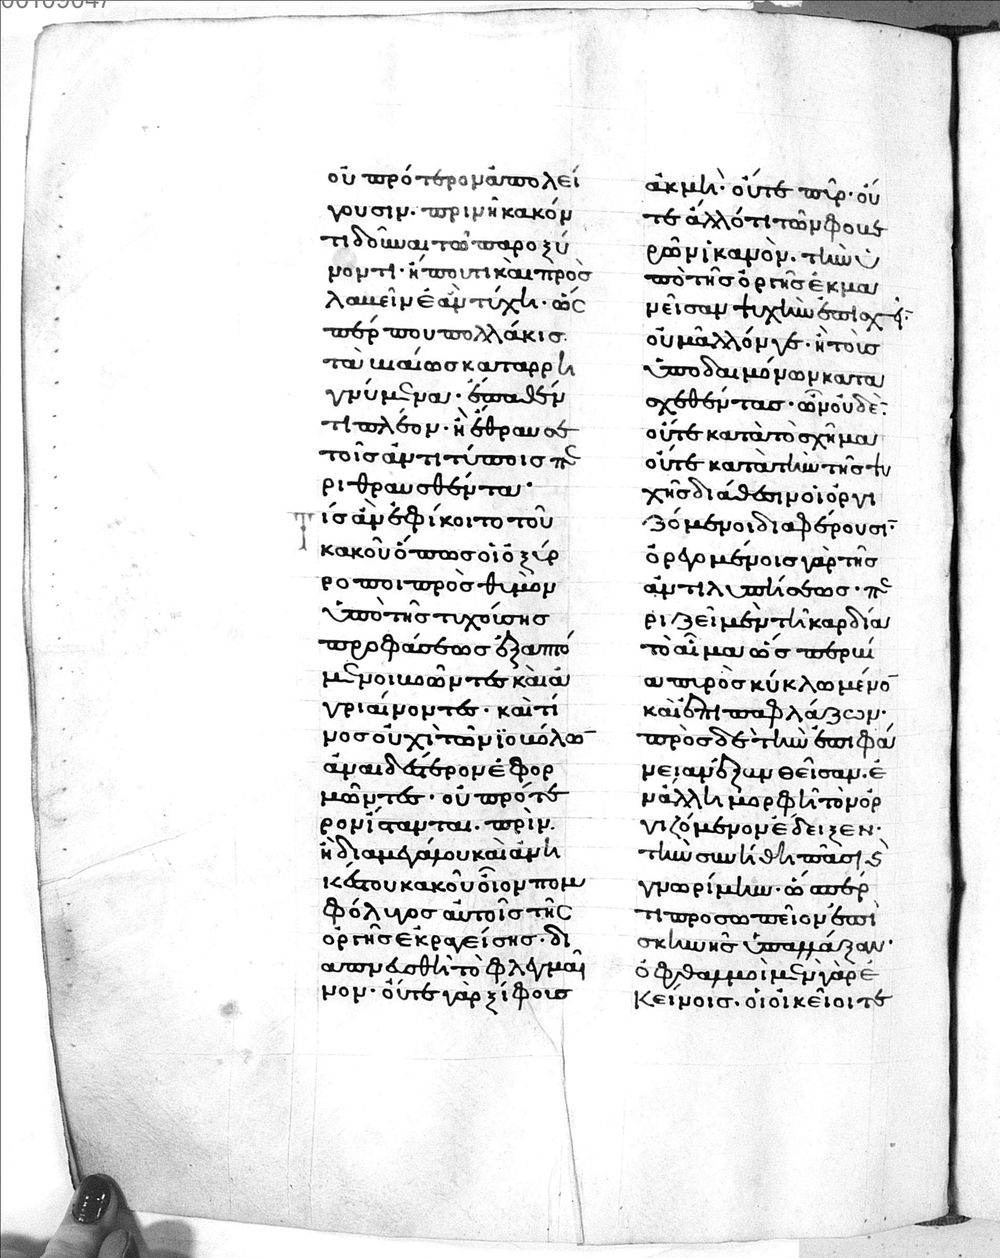 οὐ πρότερον ἀπολεί
γουσιν. πρὶν ἢ κακόν
τι δοῦναι τῶ παροξύ
νοντι· ἤ που τι καὶ προσ
λαβεῖν ἐὰν τύχη· ὥσ
περ που πολλάκισ
τὰ βιαίωσ καταρρη
γνύμενα· ἔπαθέν
τι πλέον· ἢ ἔθραυσε
τοῖσ ἀντιτύποισ πε
ριθραυσθέντα·
Τίσ ἂν ἐφίκοιτο τοῦ
κακοῦ ὅπωσ οἱ ὀξύρ
ροποι πρὸσ θυμὸν
ὑπὸ τῆσ τυχούσησ
προφάσεωσ ἐξαπτό
μενοι βοῶντεσ καὶ ἀ
γριαίνοντεσ· καὶ τί
νοσ οὐχὶ τῶν ἰοβόλω̄
ἀναιδέστερον ἐφορ
μῶντεσ· οὐ πρότε
ρον ἵστανται. πρὶν.
ἢ διαμεγάλου καὶ ἀνη
κέστου κακοῦ οἷον πομ
φόλυγοσ αὐτοῖσ τῆσ
ὀργῆσ ἐκραγείσησ· δι
απνευσθῆ τὸ φλεγμαῖ
νον· οὔτε γὰρ ξίφουσ
ἀκμὴ· οὔτε πῦρ· οὔ
τε ἄλλό τι τῶν φοβε
ρῶν ἱκανὸν. τὴν ὑ
πὸ τῆσ ὀργῆσ ἐκμα
νεῖσαν ψυχὴν ἐπισχεῖ̄·
οὐ μᾶλλόν γε· ἢ τοὺσ
ὑπο δαιμόνων κατα
σχεθέντασ· ὧν οὐδὲ̄·
οὔτε κατὰ τὸ σχῆμα
οὔτε κατὰ τὴν τῆσ ψυ
χῆσ διάθεσιν οἱ ὀργι
ζόμενοι διαφέρουσῑ·
ὀρεγομένοισ γὰρ τῆσ
ἀντιλυπήσεωσ· πε
ριζεῖ μὲν τῆ καρδία
τὸ αἷμα ὡσπερ βί
α πυρὸσ κυκλωμενō
καὶ ἐπιπαφλάζων·
πρὸσ δὲ τὴν ἐπιφά
νειαν ἐξανθεῖσαν. ἐ
ν ἄλλη μορφῆ τὸν ὀρ
γιζόμενον ἔδειξεν·
τὴν συνήθη πᾶσι κ̀
γνωρίμην· ὥσπερ
τι προσωπεῖον ἐπὶ
σκηνῆσ ὑπαλλάξαν·
ὀφθαλμοὶ μὲν γὰρ ἐ
κείνοισ. οἱ οἰκεῖοί τε